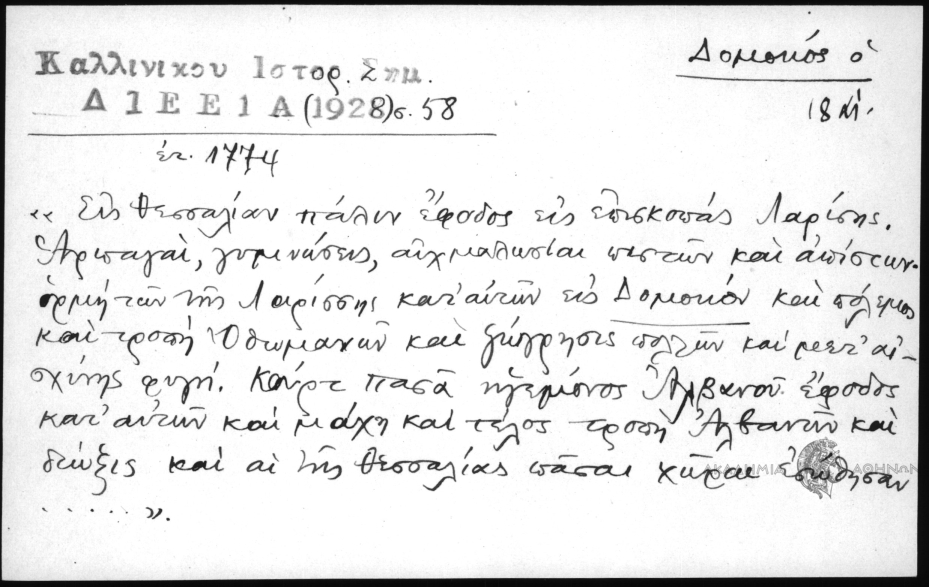 Δομοκός ὁ
18 αἰ.
Καλλινίκου Ιστορ. Σημ.
Δ Ι Ε Ε Ι Α (1928) σ. 58
ἐτ. 1774
«Εἰς Θεσσαλίαν πάλιν ἔφοδος εἰς ἐπισκοπάς Λαρίσης.
Ἁρπαγαὶ, γυμνώσεις, αἰχμαλωσίαι πιστῶν καὶ ἀπίστων·
ὁρμή τῶν τῆς Λαρίσσης κατ' αὐτῶν εἰς Δομοκόν καὶ πόλεμος
καὶ τροπή Ὀθωμανῶν καὶ ζώγρησις πολλῶν καὶ μετ' αἰ-
σχύνης φυγή. Κούρτ πασᾶ ἡγεμόνος Ἀλβανοῦ ἔφοδος
κατ' αὐτῶν καὶ μάχη καὶ τέλος τροπή Ἀλβανῶν καὶ
δίωξις καὶ αἱ τῆς Θεσσαλίας πᾶσαι χῶραι ἐσώθησαν
. . . . . ».
ΑΚΑΔΗΜΙΑ ΑΘΗΝΩΝ